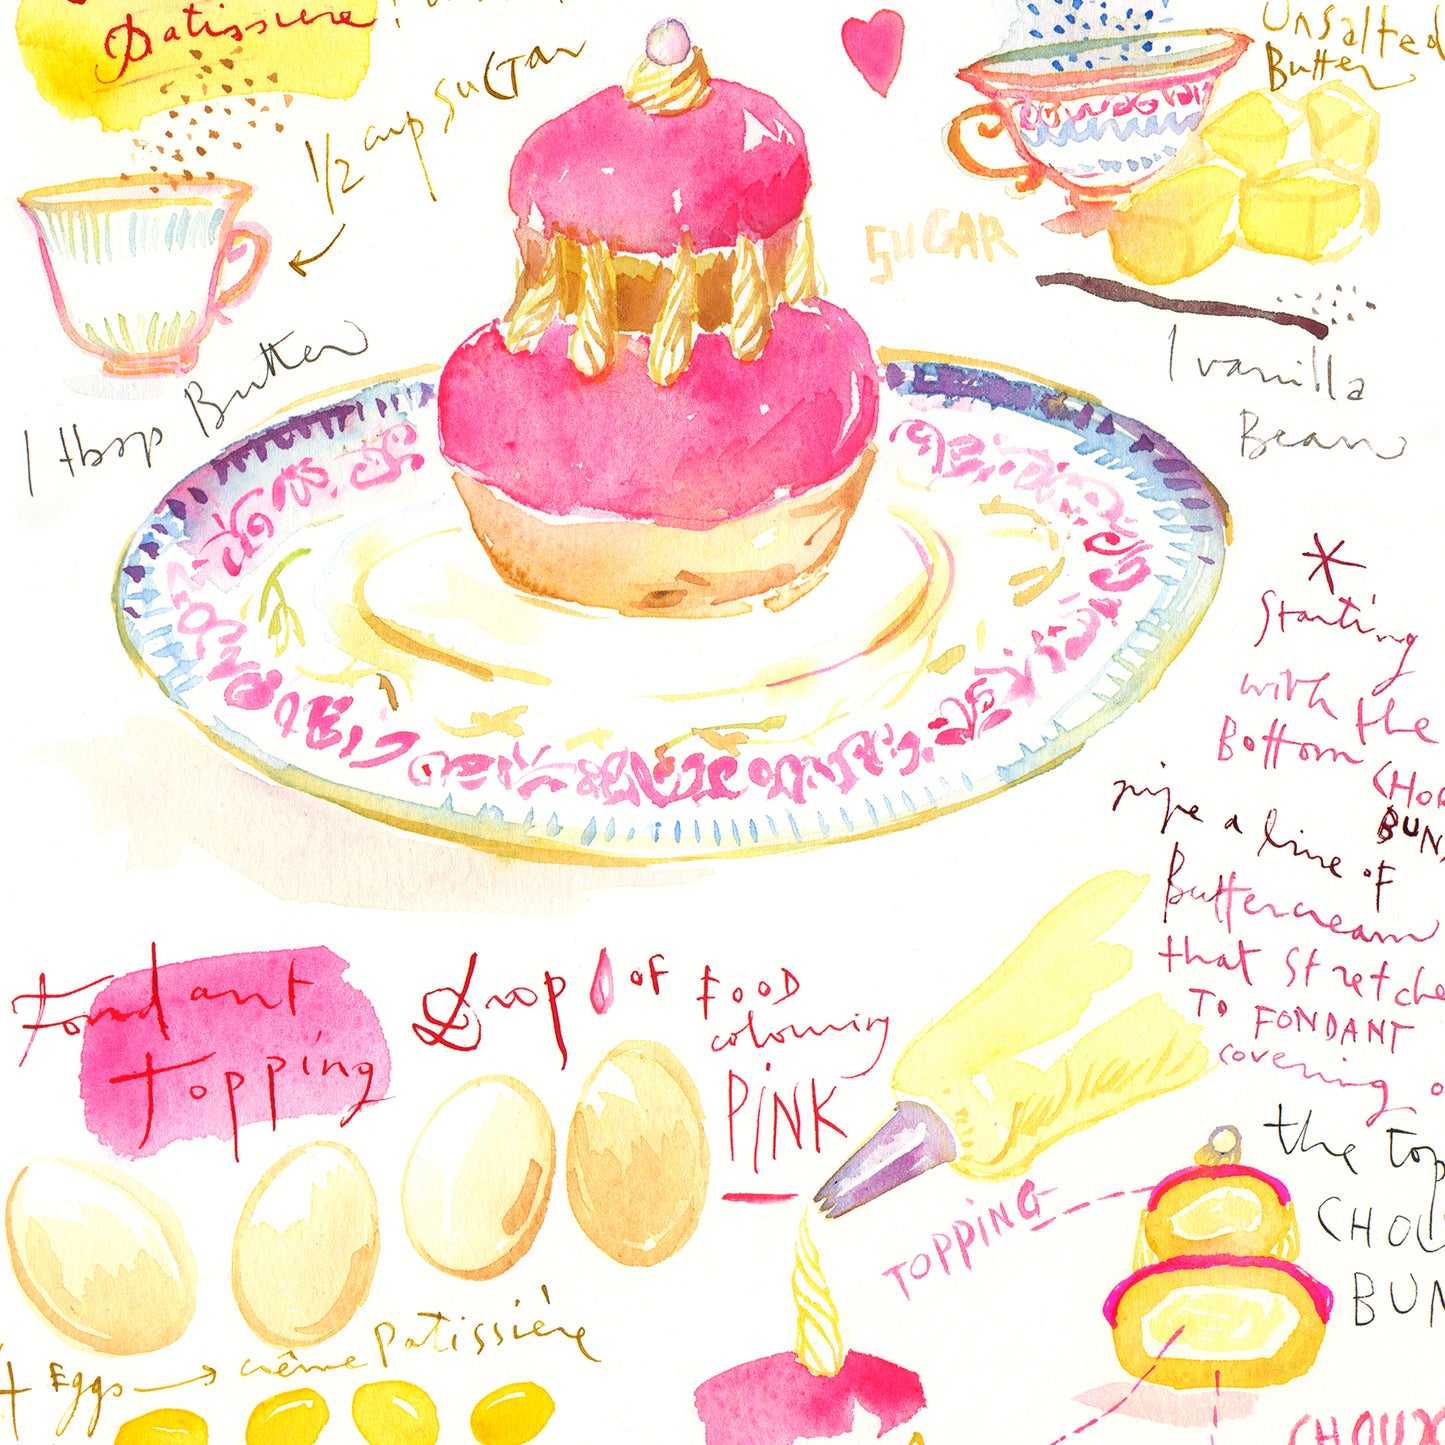 Patissiere
1/2 cup sugar
1 tbsp Butter
Unsalted
Butter
SUGAR
1 vanilla
Bean
*
Starting
with the
Bottom
CHO
BUN
pipe a line of
Buttercream
that stretche
TO FONDANT
covering o
the top
CHOU
BUN
Fondant
topping
Drop OF FOOD
colouring
PINK
TOPPING
4 Eggs → crème Patissière
CHOUX